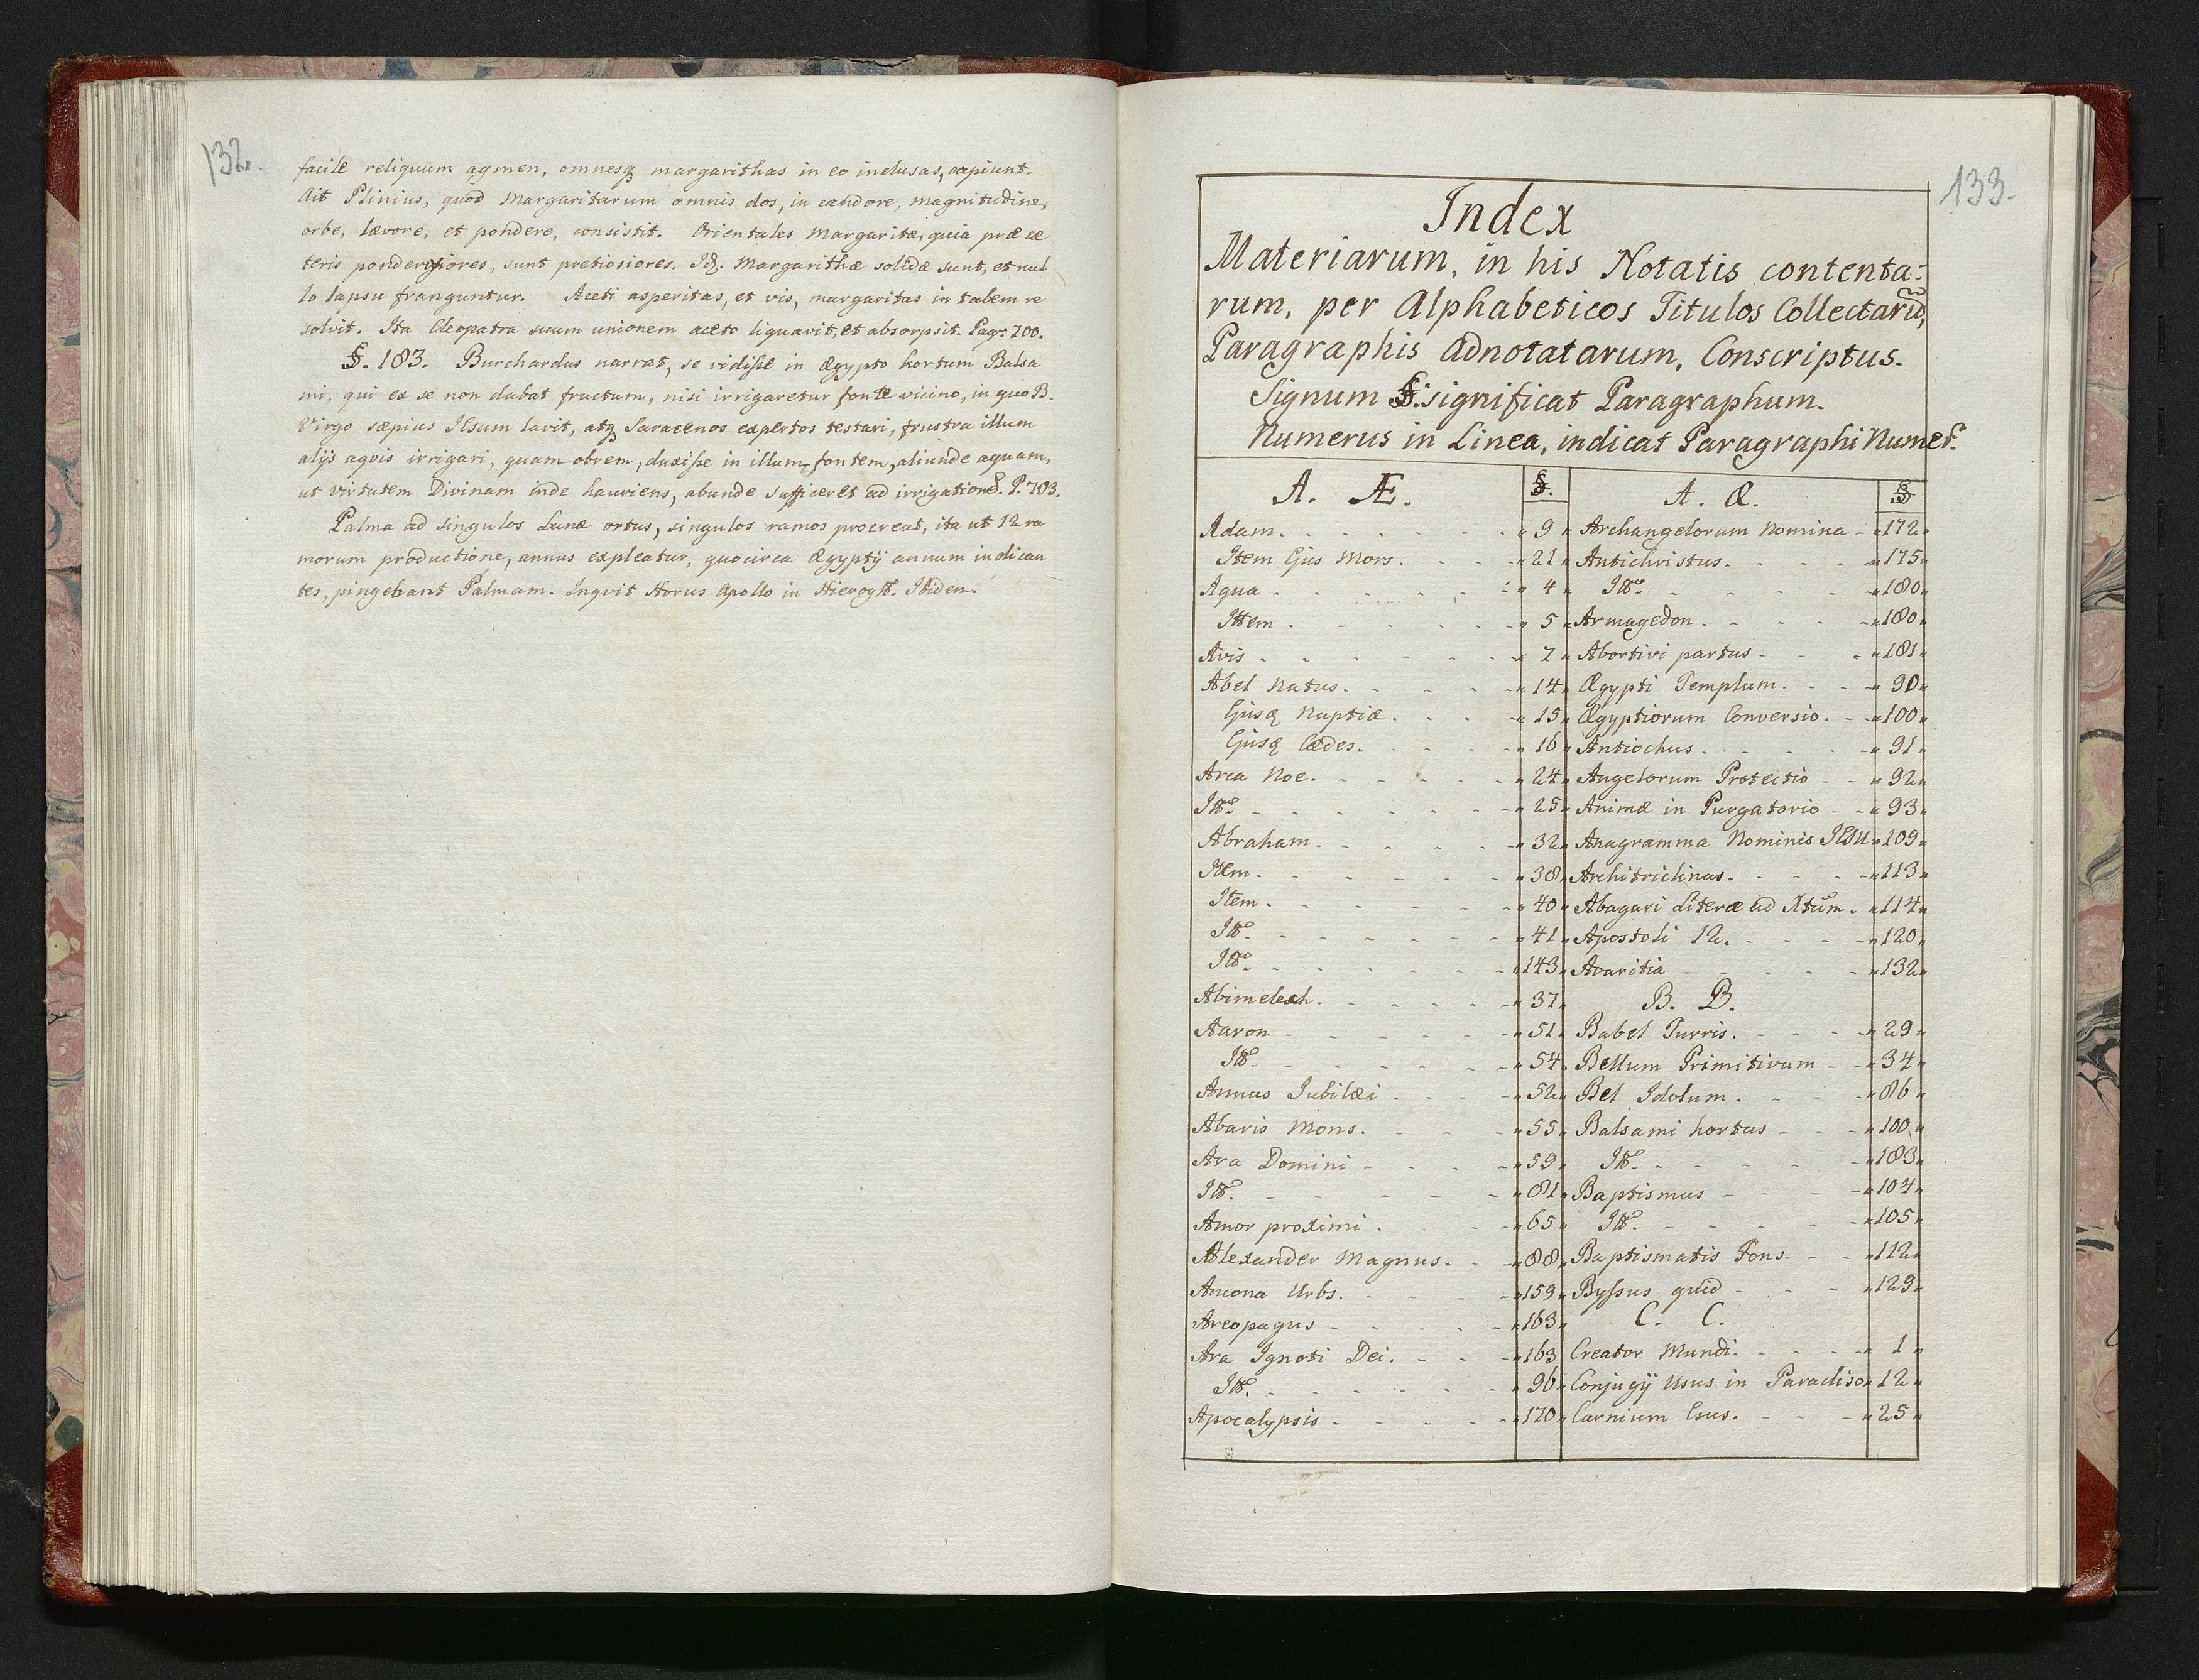 132.
facile reliquum agmen, omnesq; margarithas in eo inclusas, capiunt.
Ait Plinius, quod Margaritarum omnis dos, in candore, magnitudine,
orbe, lævore, et pondere, consistit. Orientales Margaritæ, quia præ cæ
teris ponderosiores, sunt pretiosiores. Id. Margarithæ solidæ sunt, et nul
lo lapsu franguntur. Aceti asperitas, et vis, margaritas in tabem re
solvit. Ita Cleopatra suum unionem aceto liquavit, et absorpsit. Pag: 700.
§. 183. Burchardus narrat, se vidisse in Ægypto hortum Balsa
mi, qui ex se non dabat fructum, nisi irrigaretur fonte vicino, in quo B.
Virgo sæpius JEsum lavit, atq; Saracenos expertos testari, frustra illum
alijs aqvis irrigari, quam obrem, duxisse in illum fontem, aliunde aquam,
ut virtutem Divinam inde hauriens, abunde sufficeret ad irrigatione. P. 703.
Palma ad singulos Lunæ ortus, singulos ramos procreat, ita ut 12 ra
morum productione, annus expleatur, quocirca Ægyptij annum indican
tes, pingebant Palmam. Inqvit Horus Apollo in Hierogl. Ibidem.
133.
Index
Materiarum, in his Notatis contenta:
rum, per Alphabeticos Titulos Collectarū,
Paragraphis adnotatarum, Conscriptus.
Signum §. significat Paragraphum.
Numerus in Linea, indicat Paragraphi Numer.
A. Æ. §.
Adam. 9
Item Ejus Mors. 21
Aqua 4
Ittem 5
Avis 7
Abel Natus. 14
Ejusq Nuptiæ. 15
Ejusq Cædes. 16
Arca Noe. 24
Itt. 25
Abraham. 32
Item. 38
Item. 40
Itt. 41
Itt. 143
Abimelech. 37
Aaron 51
Itt. 54
Annus Jubilæi 52
Abaris Mons. 55
Ara Domini 59
Itt. 81
Amor proximi. 65
Alexander Magnus. 88
Ancona Urbs. 159
Areopagus 163
Ara Ignoti Dei. 163
Itt. 96
Apocalypsis 170
A. Æ. §
Archangelorum Nomina 172
Antichristus. 175
Itt. 180
Armagedon. 180
Abortivi partus 181
Ægypti Templum. 90
Ægyptiorum Conversio. 100
Antiochus. 91
Angelorum Protectio 92
Animæ in Purgatorio 93
Anagramma Nominis JEsu 109
Architriclinus. 113
Abagari Literæ ad Xtum. 114
Apostoli 12. 120
Avaritia 132
B. B.
Babel Turris. 29
Bellum Primitivum 34
Bel Idolum. 86
Balsami hortus 100
Itt. 183
Baptismus 104
Itt. 105
Baptismatis Fons. 112
Byssus quid 129
C. C.
Creator Mundi. 1
Conjugij Usus in Paradiso 12
Carnium Esus. 25